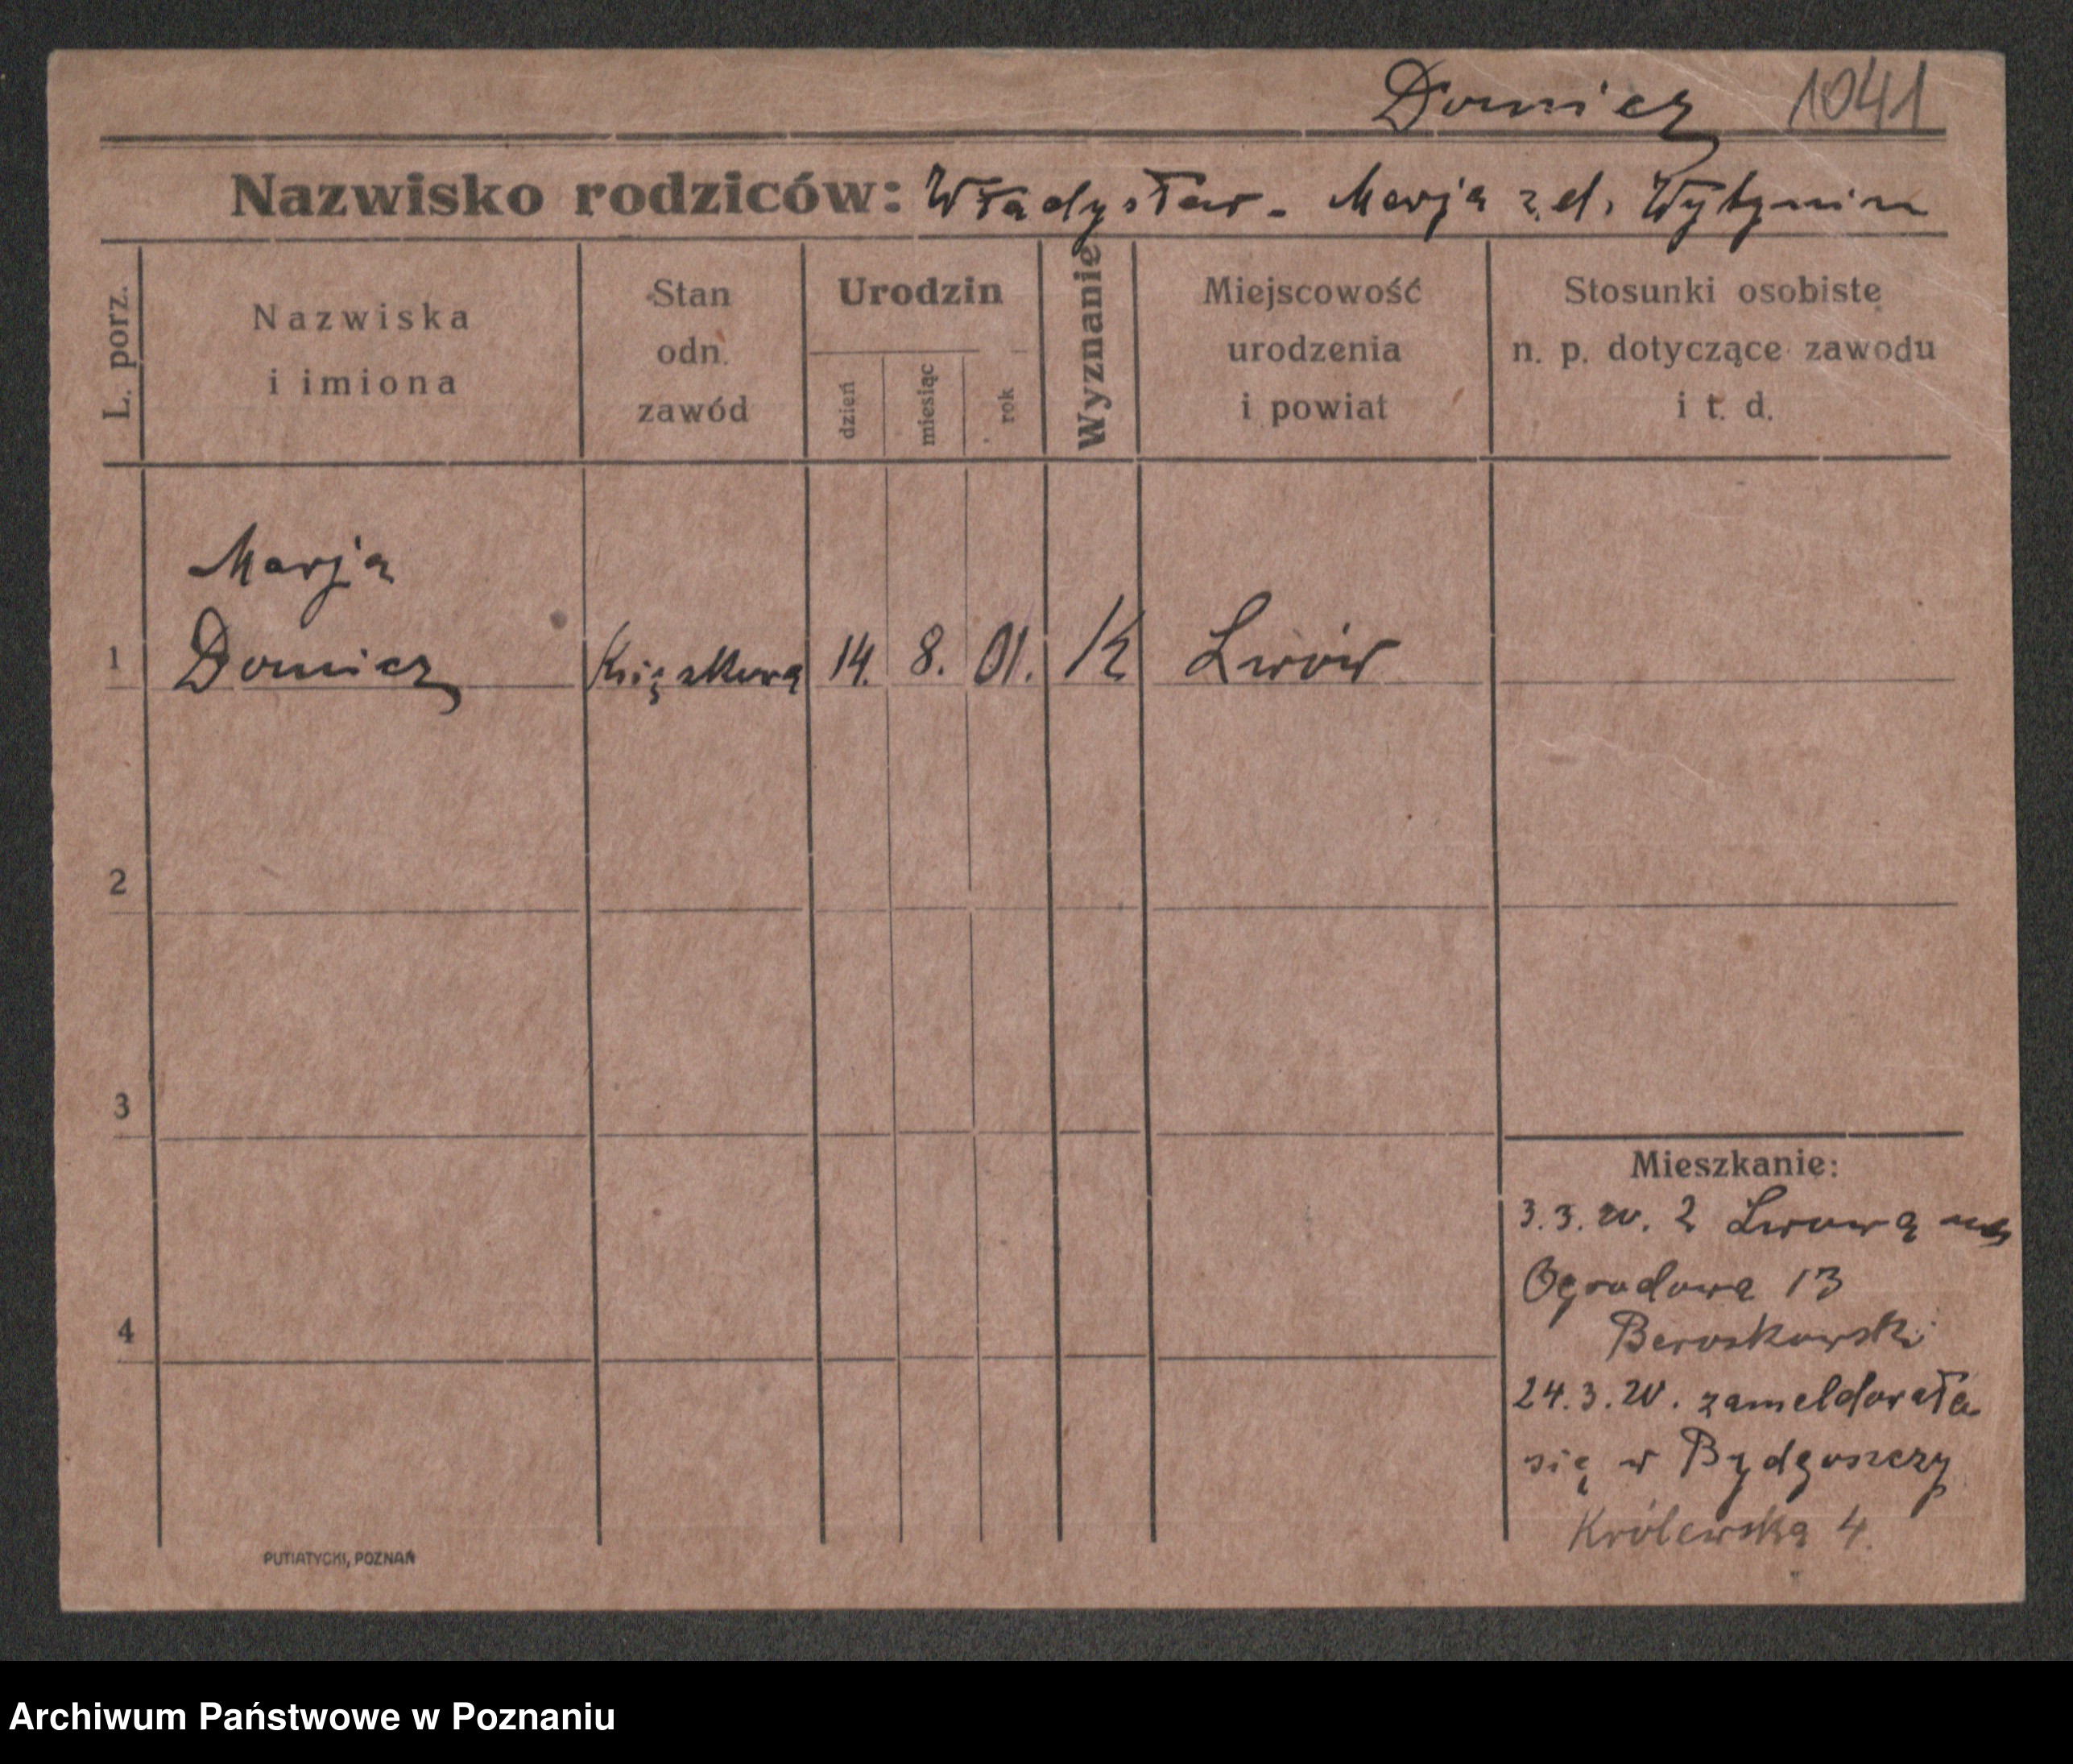 Domicz 1041
Nazwisko rodziców: Władysław - Marja z d.
L. porz.
Nazwiska
i imiona
Stan
odn.
zawód
Urodzin
dzień
miesiąc
rok
Wyznanie
Miejscowość
urodzenia
i powiat
Stosunki osobiste
n. p. dotyczące zawodu
i t. d.
Marja
1 Domicz 14. 8. 01. K Lwów
2
3
4
Mieszkanie:
3.3.20. z Lwowa
Ogrodowa 13
24.3.20. zameldowała
się w Bydgoszczy
Królewska 4.
PUTIATYCKI, POZNAŃ
Archiwum Państwowe w Poznaniu